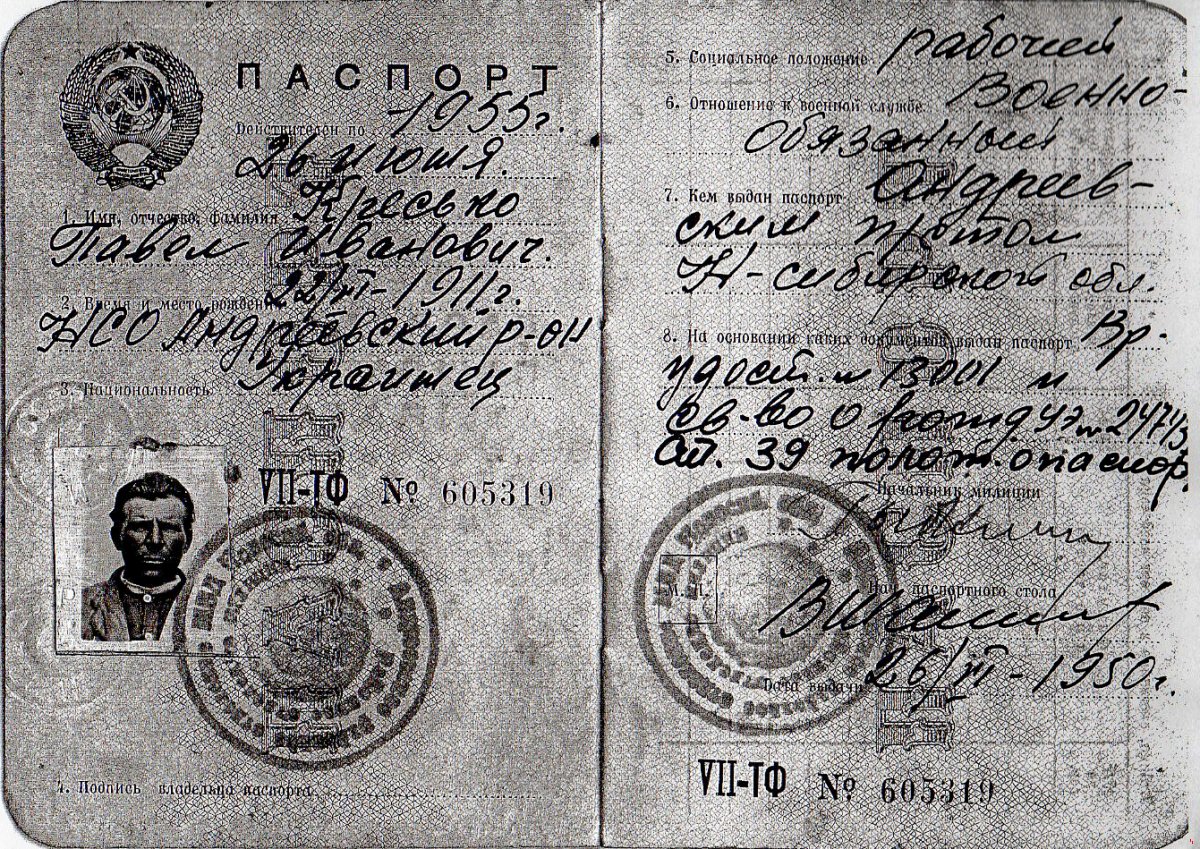 ПАСПОРТ
Действителен по -1955г.
26 июня.
1. Имя, отчество, фамилия Кресько
Павел Иванович.
2. Время и место рождения 22/III-1911г.
НСО Андреевский р-он
3. Национальность Украинец
VII-ТФ № 605319
4. Подпись владельца паспорта
5. Социальное положение рабочий
6. Отношение к военной службе Военно-
обязанный
7. Кем выдан паспорт Андреев-
ским
Н-сибирской обл.
8. На основании каких документов выдан паспорт Вр.
удост. и
св-во о рожд
Ст. 39 полож. о паспор.
Начальник милиции
М. П.
Нач. паспортного стола
Дата выдачи 26/VI-1950г.
VII-ТФ № 605319